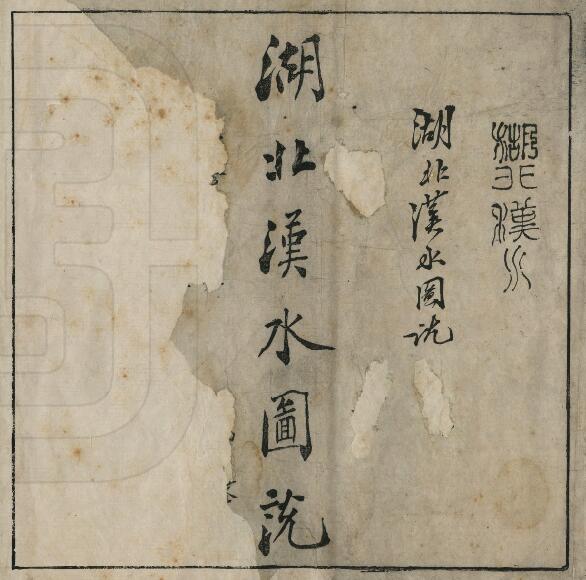 湖北漢水
湖北漢水圖説
湖北漢水圖説